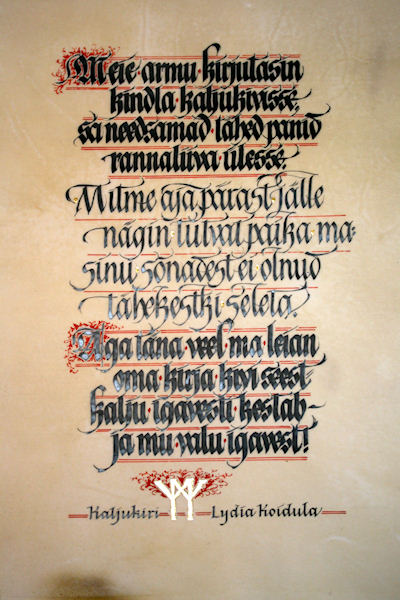 Meie armu kirjutasin
kindla kabukivisse,
sa needsamad tähed panid
rannaliiva ülesse.
Mitme aja pärast jälle
nägin tutvat paika ma-
sinu sõnadest ei olnud
tähekestki seleta.
Aga täna veel ma leian
oma kirja kivi seest-
kalju igavesti kestab-
ja mu valu igavest!
Kaljukiri Lydia Koidula